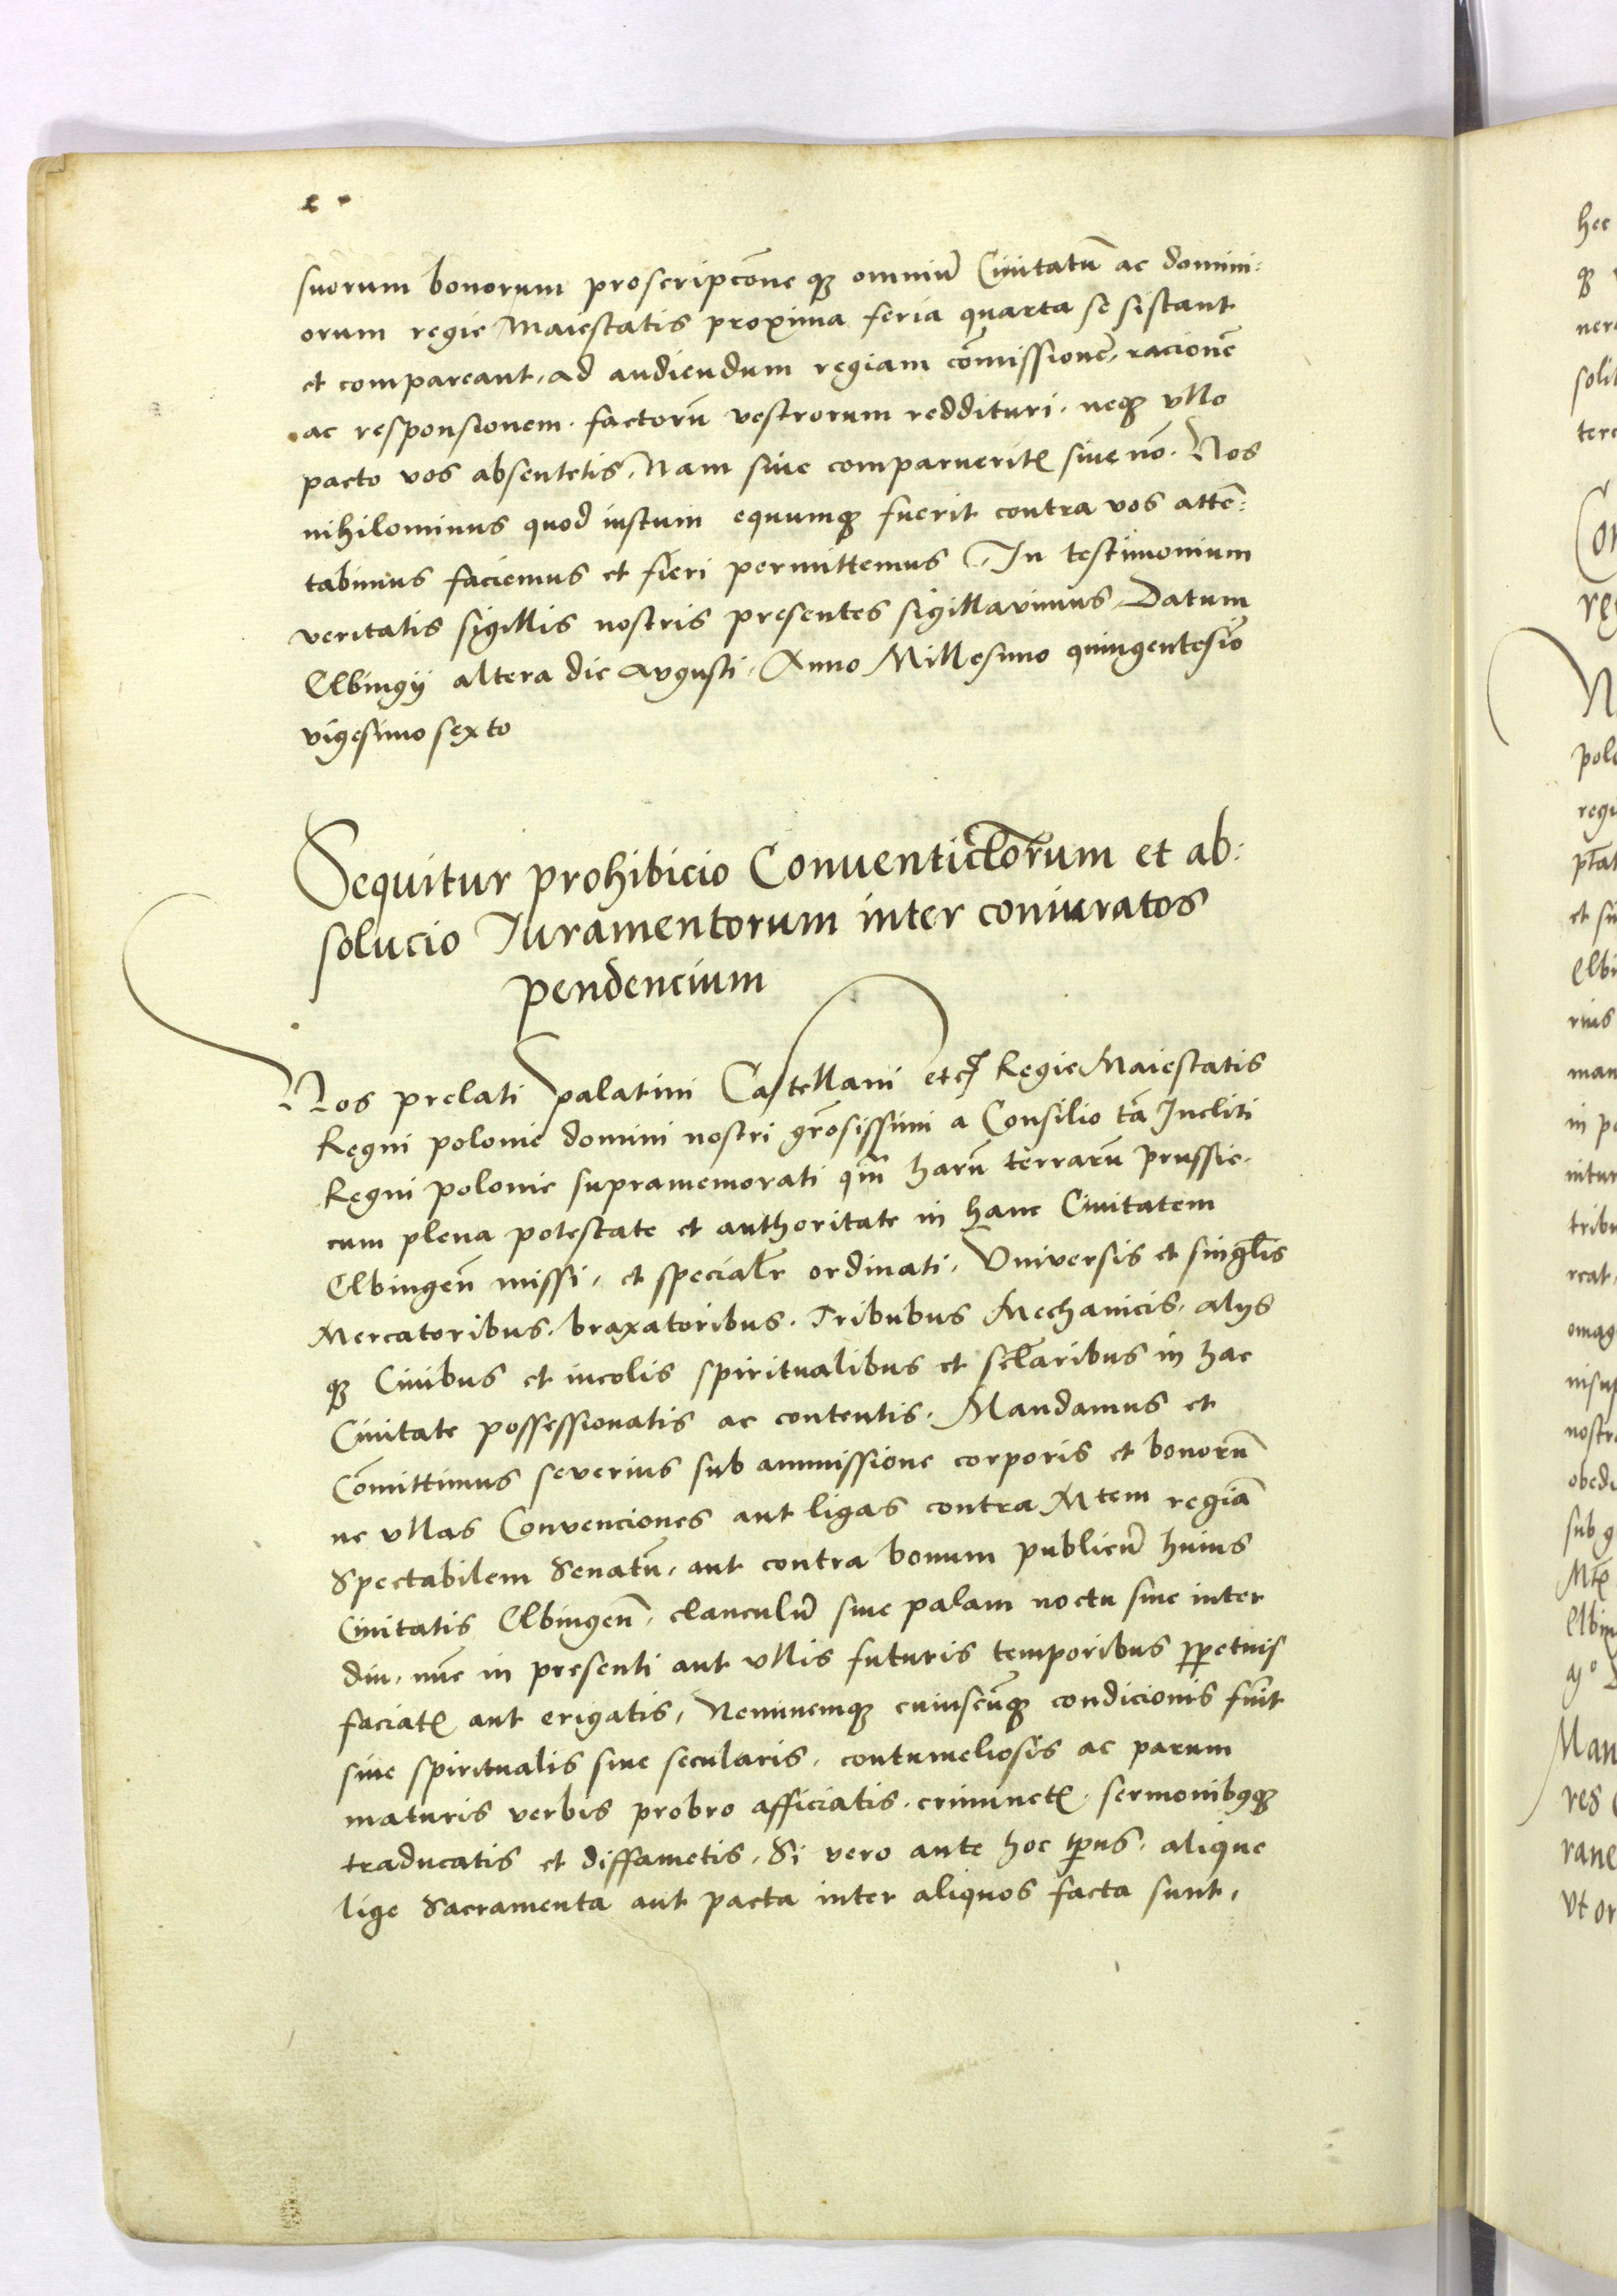 suorum bonorum proscripcōne qȝ omniū Ciuitatū ac domini:
orum regie Maiestatis proxima feria quarta se sistant
et compareant, ad audiendum regiam cōmissionē, racionē
ac responsionem. factorū vestrorum reddituri. neqȝ vllo
pacto vos absentetis. Nam siue comparueritꝭ siue nō. Nos
nihilominus quod iustum equumqȝ fuerit contra vos attē:
tabimus faciemus et fieri permittemus. In testimonium
veritatis sigillis nostris presentes sigillauimus. Datum
Elbingij altera die Augusti. Anno Millesimo quingentesīo
vigesimo sexto
Sequitur prohibicio Conuenticlōrum et ab:
solucio Iuramentorum inter coniuratos
pendencium
Nos prelati palatini Castellani etcꝭ Regie Maiestatis
Regni polonie domini nostri grōsissimi a Consilio tā Incliti
Regni polonie supramemorati qm̄ harū terrarū prussie.
cum plena potestate et authoritate in hanc Ciuitatem
Elbingen̄ missi, et specialr̄ ordinati. Vniversis et singlīs
Mercatoribus. braxatoribus. Tribubus Mechanicis. alijs
qȝ Ciuibus et incolis spiritualibus et sclāribus in hac
Ciuitate possessionatis ac contentis. Mandamus et
Cōmittimus severius sub ammissione corporis et bonorū
ne vllas Convenciones aut ligas contra Mtem regiā
Spectabilem Senatū, aut contra bonum publicū huius
Ciuitatis Elbingen̄. clanculū siue palam noctu siue inter
diu, nūc in presenti aut vllis futuris temporibus ꝑpetuis
faciatꝭ aut erigatis, Neminemqȝ cuiuscūqȝ condicionis fūit
siue spiritualis siue secularis. contumeliosis ac parum
maturis verbis probro afficiatis. criminetꝭ. sermonibꝰqȝ
traducatis et diffametis. Si vero ante hoc tp̄us. alique
lige Sacramenta aut pacta inter aliquos facta sunt,